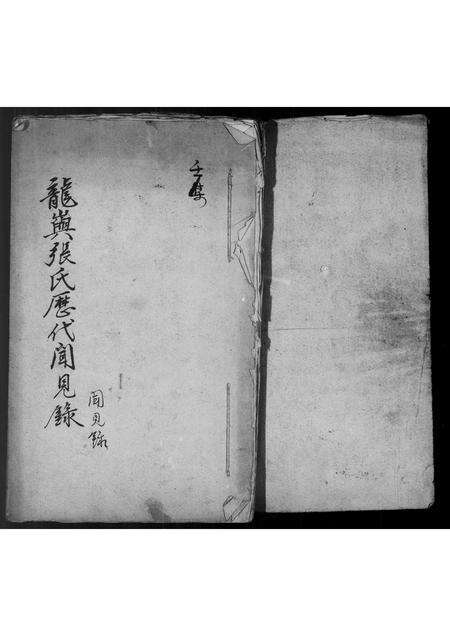 壬集
聞見錄
龍與張氏歷代聞見錄